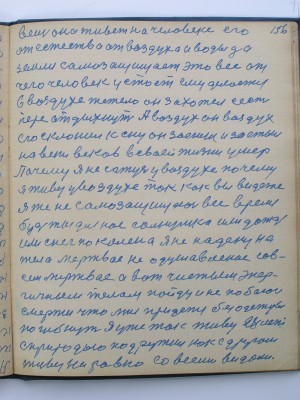 вещ она живет на человеке его 156
от естества от воздуха и воды да
земли само защищает это все от
чего человек устоет ему делается
в воздухе тепело он захотел
отдыхнут А воздух он воздух
его склонил к сну он заснул и застыл
на веки веков в своей жизни умер
Почему я не сатухну воздухе почему
я живу у воздухе так как вы видете
я же не само защищаю все время
буд ты дылное солнушка или дожд
или снег по колена я не надену на
тела мертвае не одушавленое сов-
сем мертвае а вот чистым энер-
гичным телам пойду и не побаюс
смерти что мня придет без одежды
погибнут я уже так живу
с природаю подружил как с другам
живу на равно со всеми видами.